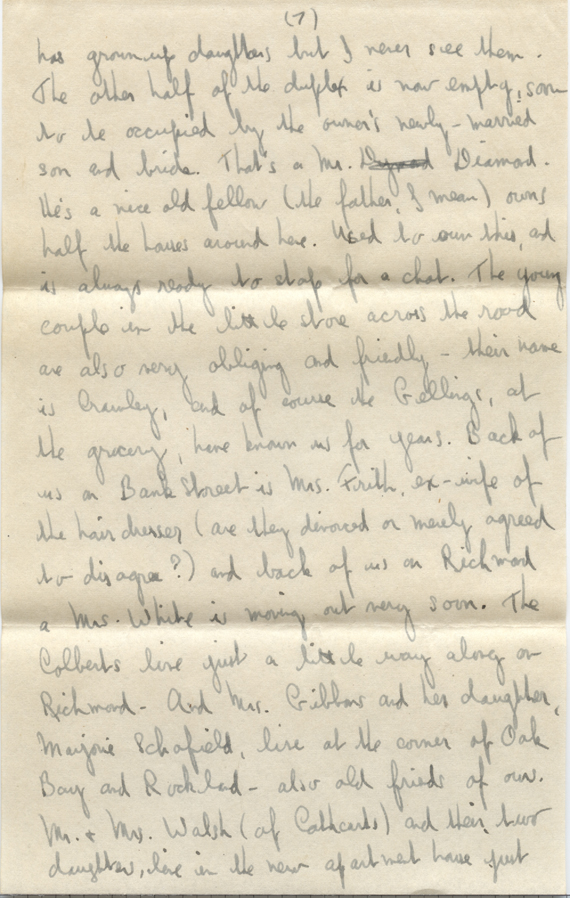 (7)
has grown-up daughters but I never see them.
The other half of the duplex is now empty, soon
to be occupied by the owner's newly-married
son and bride. That's a Mr. Diamond.
He's a nice old fellow (the father, I mean) owns
half the houses around here. Used to own this, and
is always ready to stop for a chat. The young
couple in the little store across the road
are also very obliging and friendly - their name
is Crawley, and of course the Gellings, at
the grocery, have known us for years. Back of
us on Bank Street is Mrs. Frith, ex-wife of
the hairdresser (are they divorced or merely agreed
to disagree?) and back of us on Richmond
a Mrs. White is moving out very soon. The
Colberts live just a little way along on
Richmond - And Mrs. Gibbons and her daughter,
Marjorie Schofield, live at the corner of Oak
Bay and Rockland - also old friends of ours.
Mr. & Mrs. Walsh (of Cathcarts) and their two
daughters, live in the new apartment house just